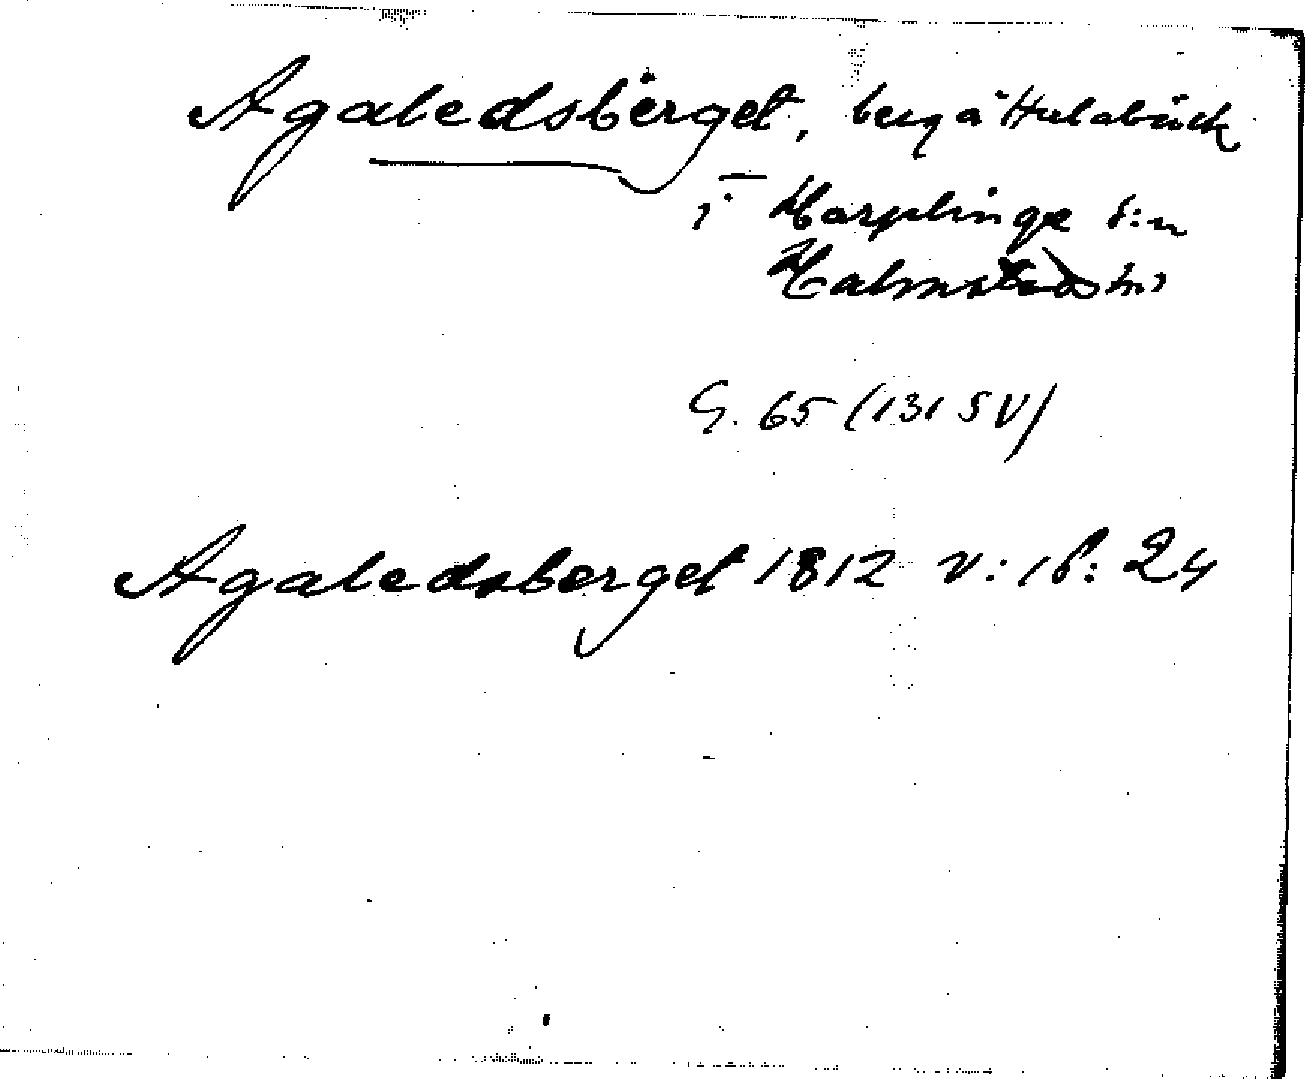 Agaledsberget, berg å Hulabäck
i Harplinge s:n
Halmstads hd
G. 65 (131 SV)
Agaledsberget 1812 v: 18: 24